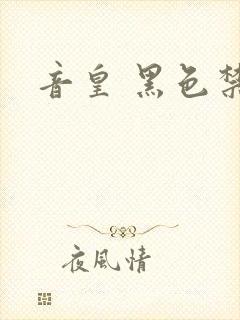 音皇 黑色禁
夜風情